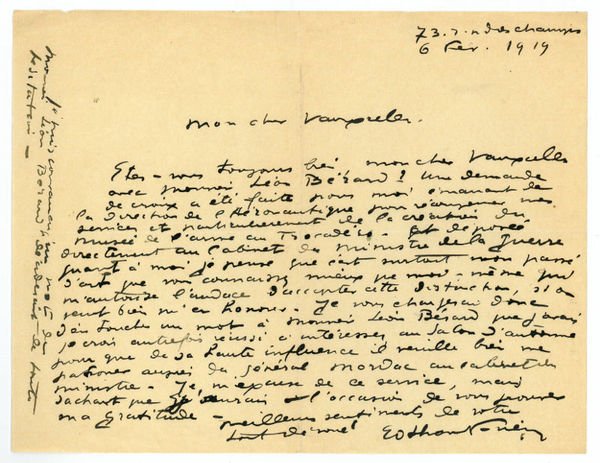 73. r. n d des champs
6 Fev. 1919
mon cher Vauxcelles.
Etes-vous toujours lié mon cher Vauxcelles
avec monsieur Léon Bérard ? Une demande
de croix a été faite pour moi émanant de
la direction de l'Aéronautique pour récompenser mes
services et particulièrement de la création du
musée de l'arme au Trocadéro. Est déposée
directement au Cabinet du ministre de la guerre
quant à moi je pense que c'est surtout mon passé
d'art que vous connaissez mieux que moi-même qui
m'autorise l'audace d'accepter cette distinction, si on
veut bien m'en honorer. Je vous chargerai donc
d'en toucher un mot à monsieur Léon Bérard que j'avais
je crois autrefois réussi à intéresser au Salon d'automne
pour que de sa haute influence il veuille bien me
patroner auprès du général mordac au cabinet du
ministre. Je m'excuse de ce service, mais
sachant que j'aurais l'occasion de vous prouver
ma gratitude - meilleurs sentiments de votre
tout dévoué
monsieur Léon Bérard